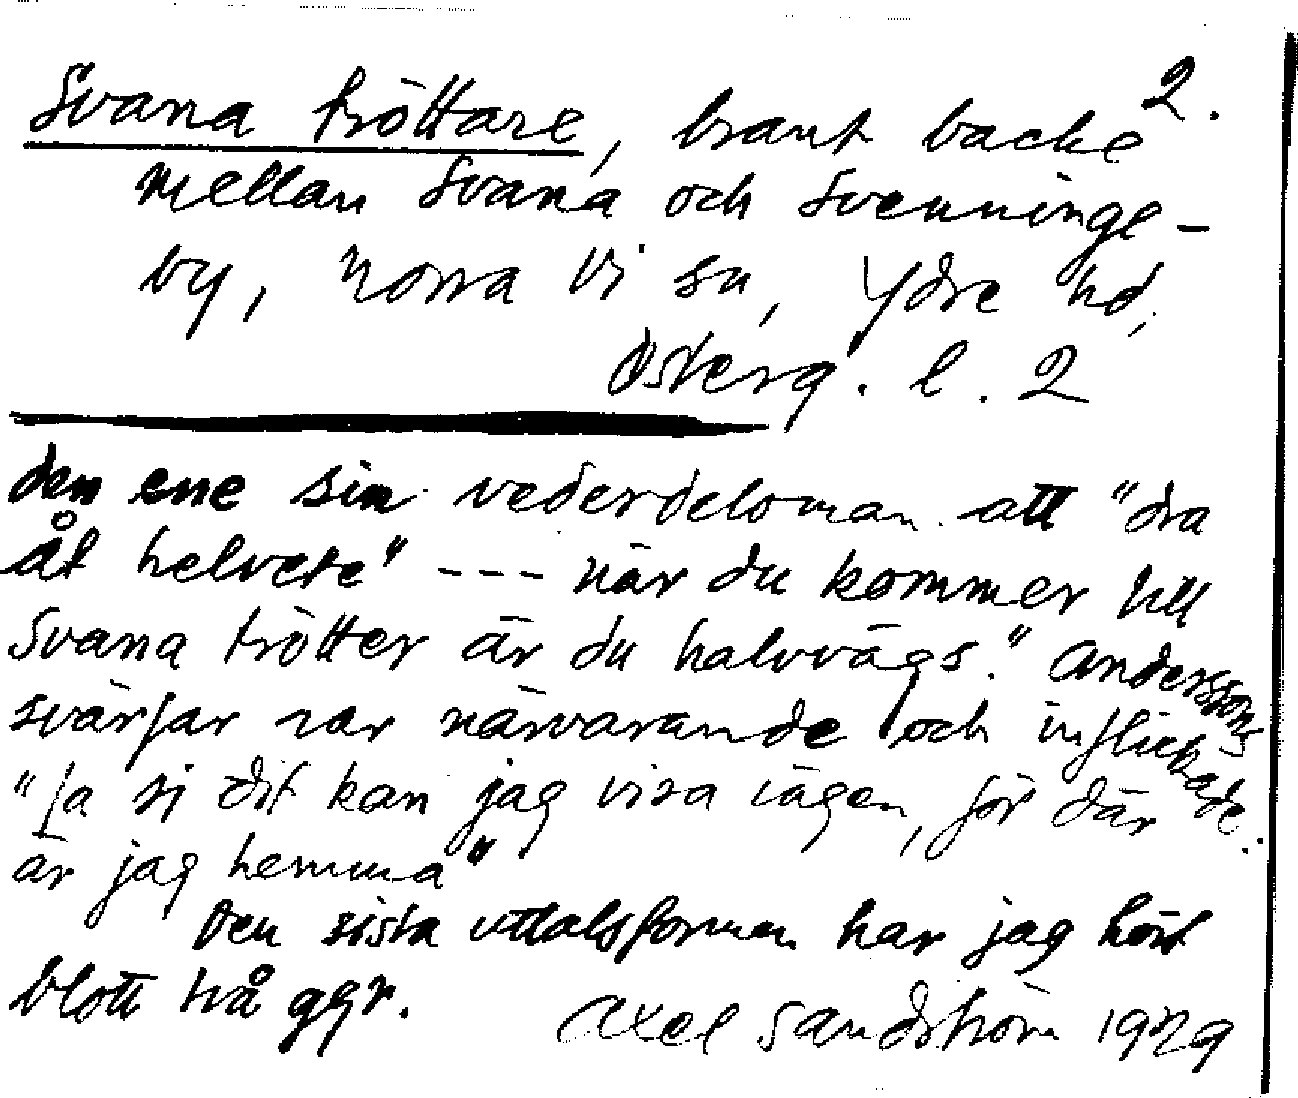 2.
Svana tröttare, brant backe
mellan Svana och Svenninge-
by, Norra Vi sn, Ydre hd,
Österg. l. 2
den ene sin vederdeloman att "dra
åt helvete" --- när du kommer till
Svana trötter är du halvvägs." Anderssons
svärfar var närvarande och inflickade:
"Ja si dit kan jag visa vägen, för där
är jag hemma"
Den sista uttalsformen har jag hört
blott två ggr. Axel Sandström 1929